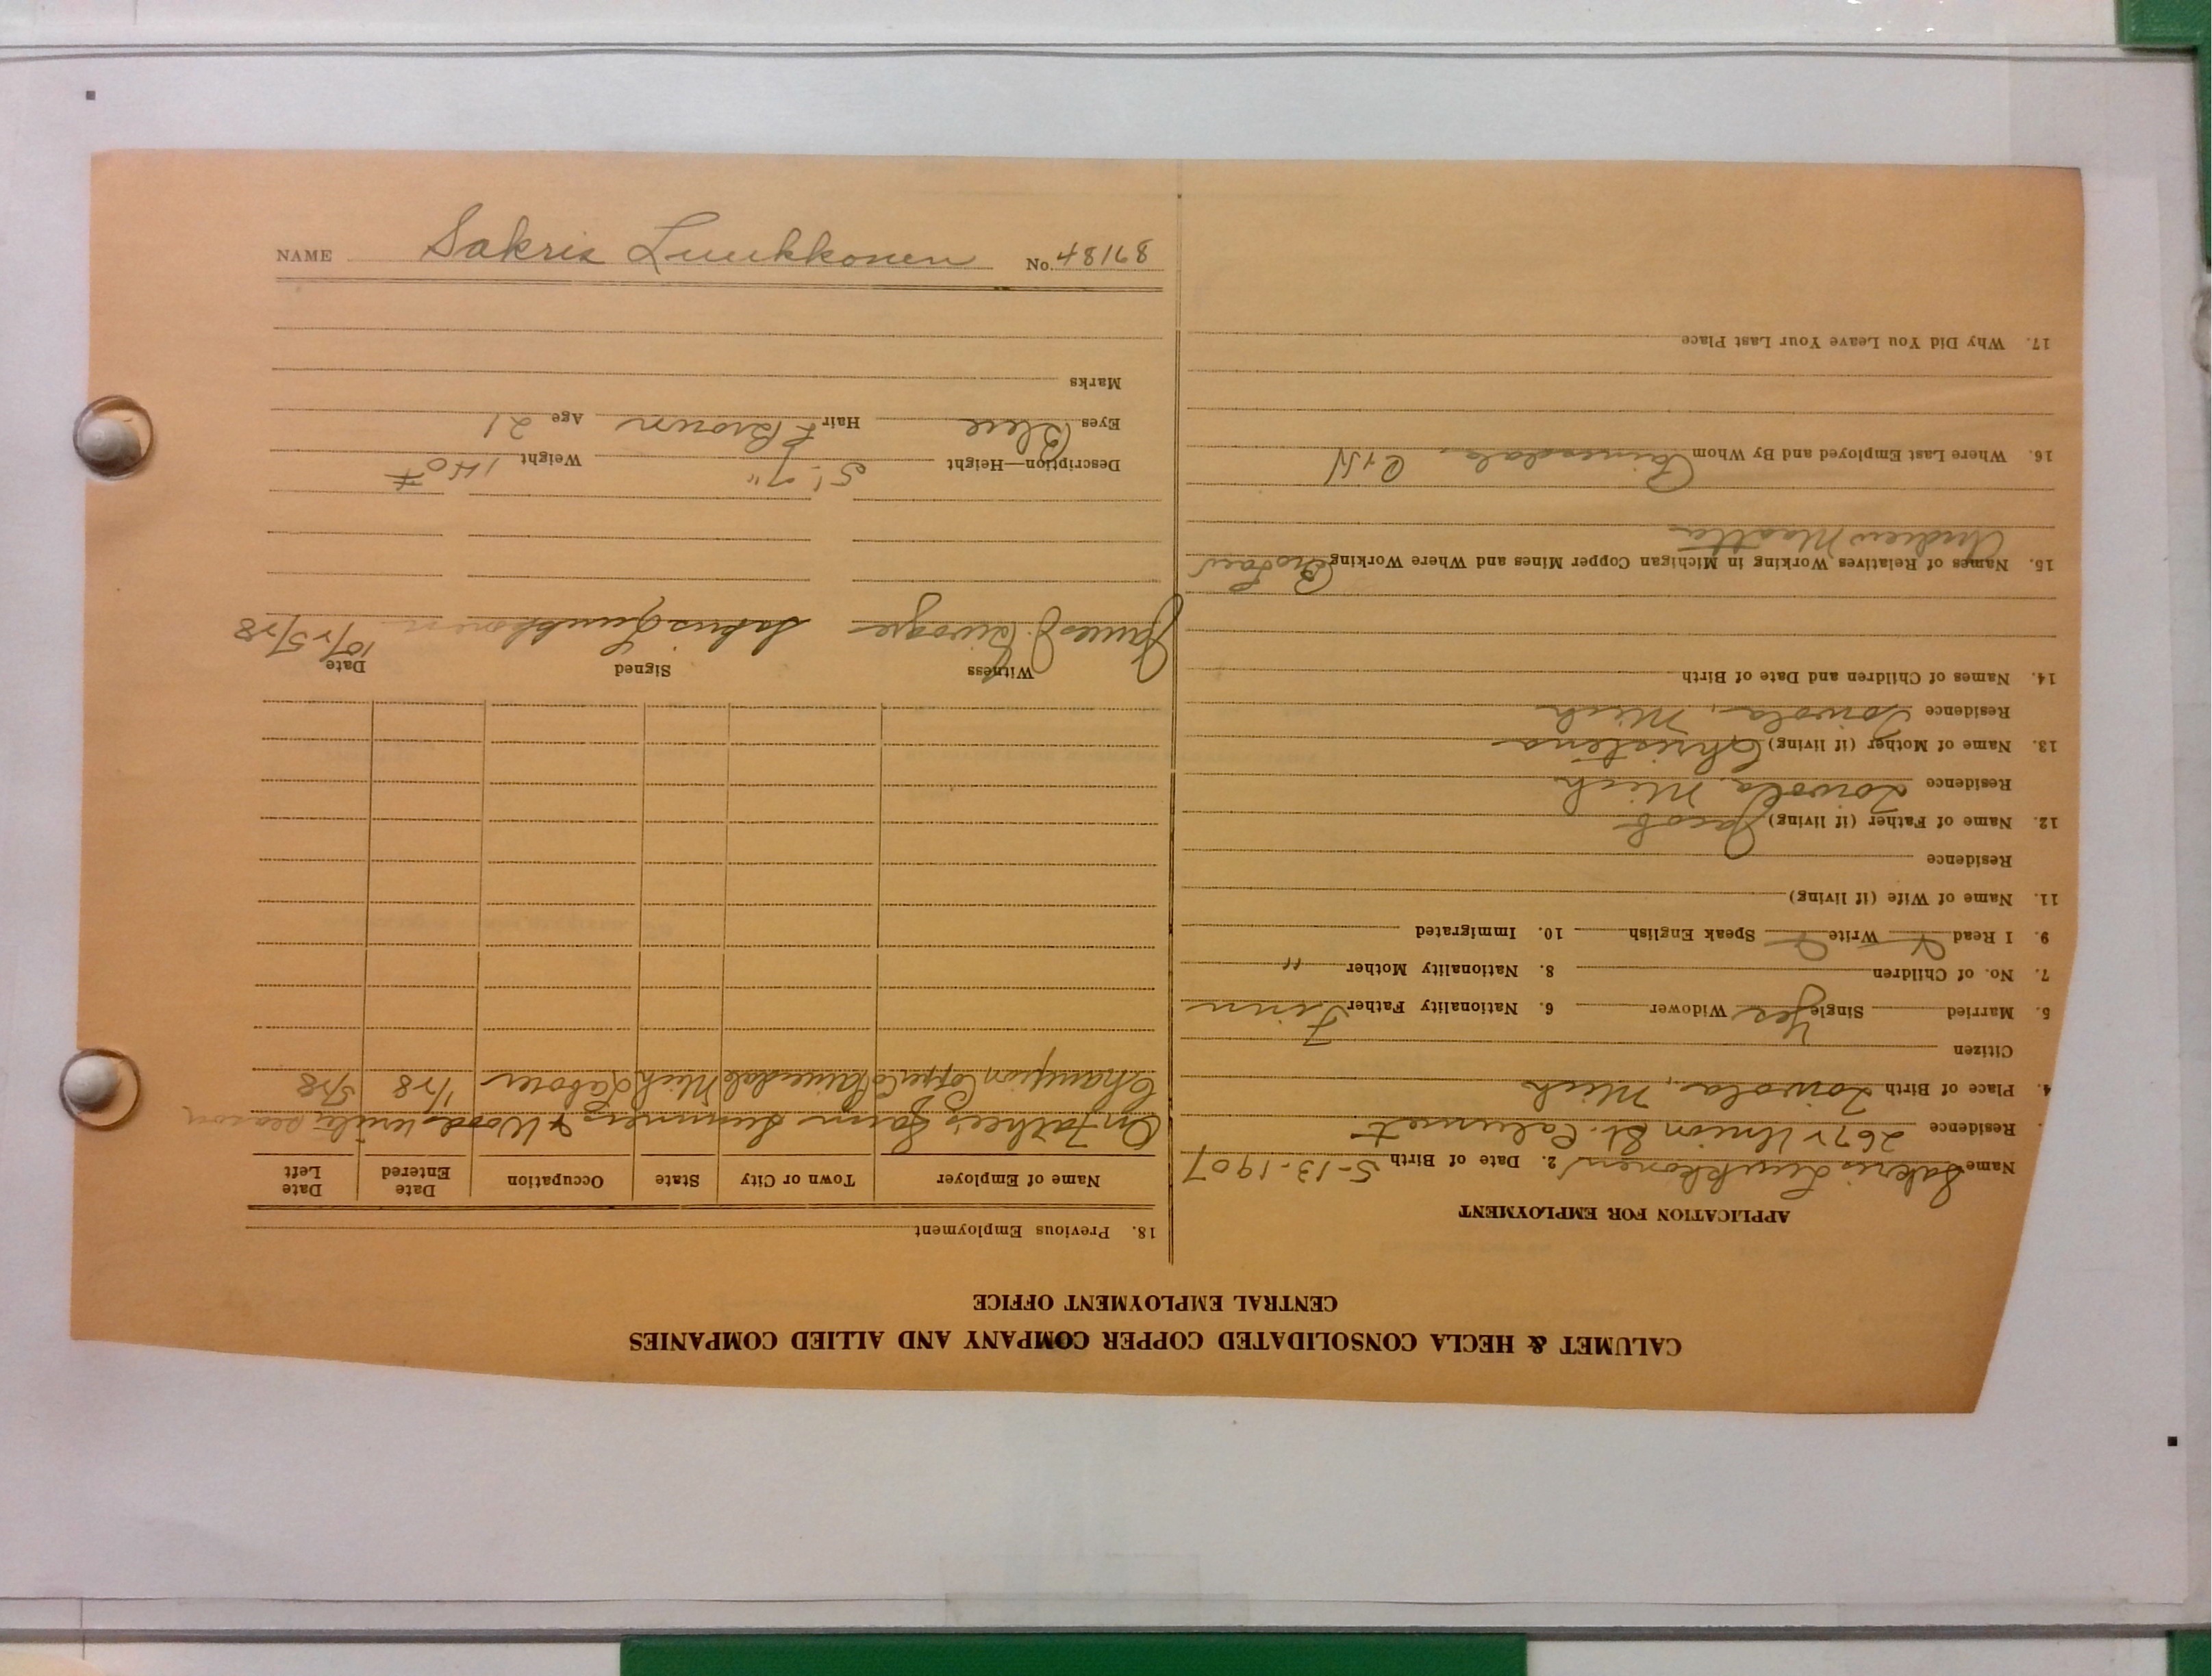 NAME Sakris Luukkonen No. 48168
CALUMET & HECLA CONSOLIDATED COPPER COMPANY AND ALLIED COMPANIES
CENTRAL EMPLOYMENT OFFICE
APPLICATION FOR EMPLOYMENT
Name Sakris Luukkonen 2. Date of Birth 5-13-1907
Residence 2672 Union St. Calumet
4. Place of Birth Toivola, Mich
Citizen
5. Married Single Yes Widower 6. Nationality Father Finn
7. No. of Children 8. Nationality Mother "
9. I Read Write Speak English 10. Immigrated
11. Name of Wife (if living)
Residence
12. Name of Father (if living) Jacob
Residence Toivola, Mich
13. Name of Mother (if living) Christena
Residence Toivola, Mich
14. Names of Children and Date of Birth
15. Names of Relatives Working in Michigan Copper Mines and Where Working
Andrew
16. Where Last Employed and By Whom Painesdale,
17. Why Did You Leave Your Last Place
18. Previous Employment
Name of Employer Town or City State Occupation Date Entered Date Left
On Father's Farm Summers & Woods winter season
Champion Copper Co Painesdale Mich Laborer 1/28 5/28
Witness Signed Date
James J. Sakris Luukkonen 10/25/28
Description—Height 5' 7" Weight 140 #
Eyes Blue Hair Brown Age 21
Marks